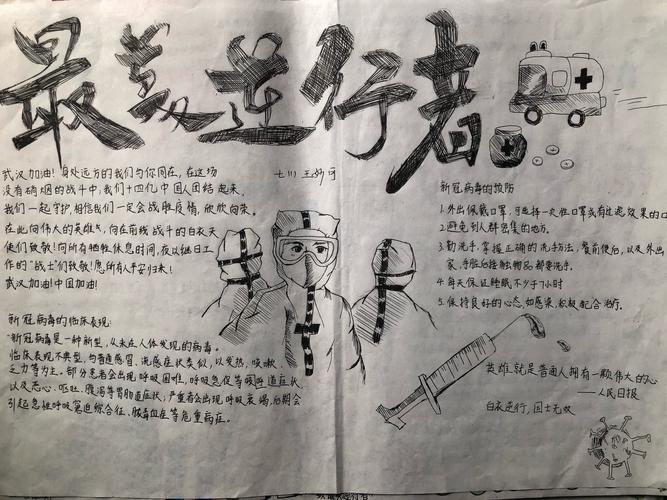 最美逆行者
七川王妤可
武汉加油!身处远方的我们与你同在,在这场
没有硝烟的战斗中,我们十四亿中国人团结起来,
我们一起守护,相信我们一定会战胜疫情,欣欣向荣。
在此向伟大的英雄们,向在前线战斗的白衣天
使们致敬!向所有牺牲休息时间,夜以继日工
作的"战士"们致敬!愿所有人平安归来!
武汉加油!中国加油!
新冠病毒的临床表现:
"新冠病毒是一种新型,从未在人体发现的病毒。
临床表现不典型,与普通感冒、流感症状类似,以发热,咳嗽、
乏力等为主。部分患者会出现呼吸困难,呼吸急促等呼吸道症状
以及恶心、呕吐、腹泻等胃肠道症状;严重者会出现呼吸衰竭,后期会
引起急性呼吸窘迫综合征、脓毒血症等危重病症。
新冠病毒的预防
1.外出佩戴口罩,可选择一次性口罩或有过滤效果的口
2.避免到人群密集的地方。
3.勤洗手,掌握正确的洗手方法,餐前便后,以及外出
家,手脏后接触物品都要洗手。
4.每天保证睡眠不少于7小时
5.保持良好的心态,如感染,积极配合治疗。
英雄就是普通人拥有一颗伟大的心
——人民日报
白衣逆行,国士无双